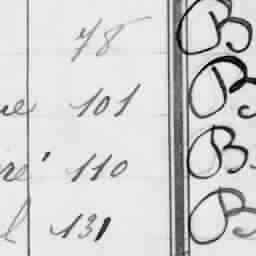 78 B
ue 101 B
ré 110 B
l 131 B